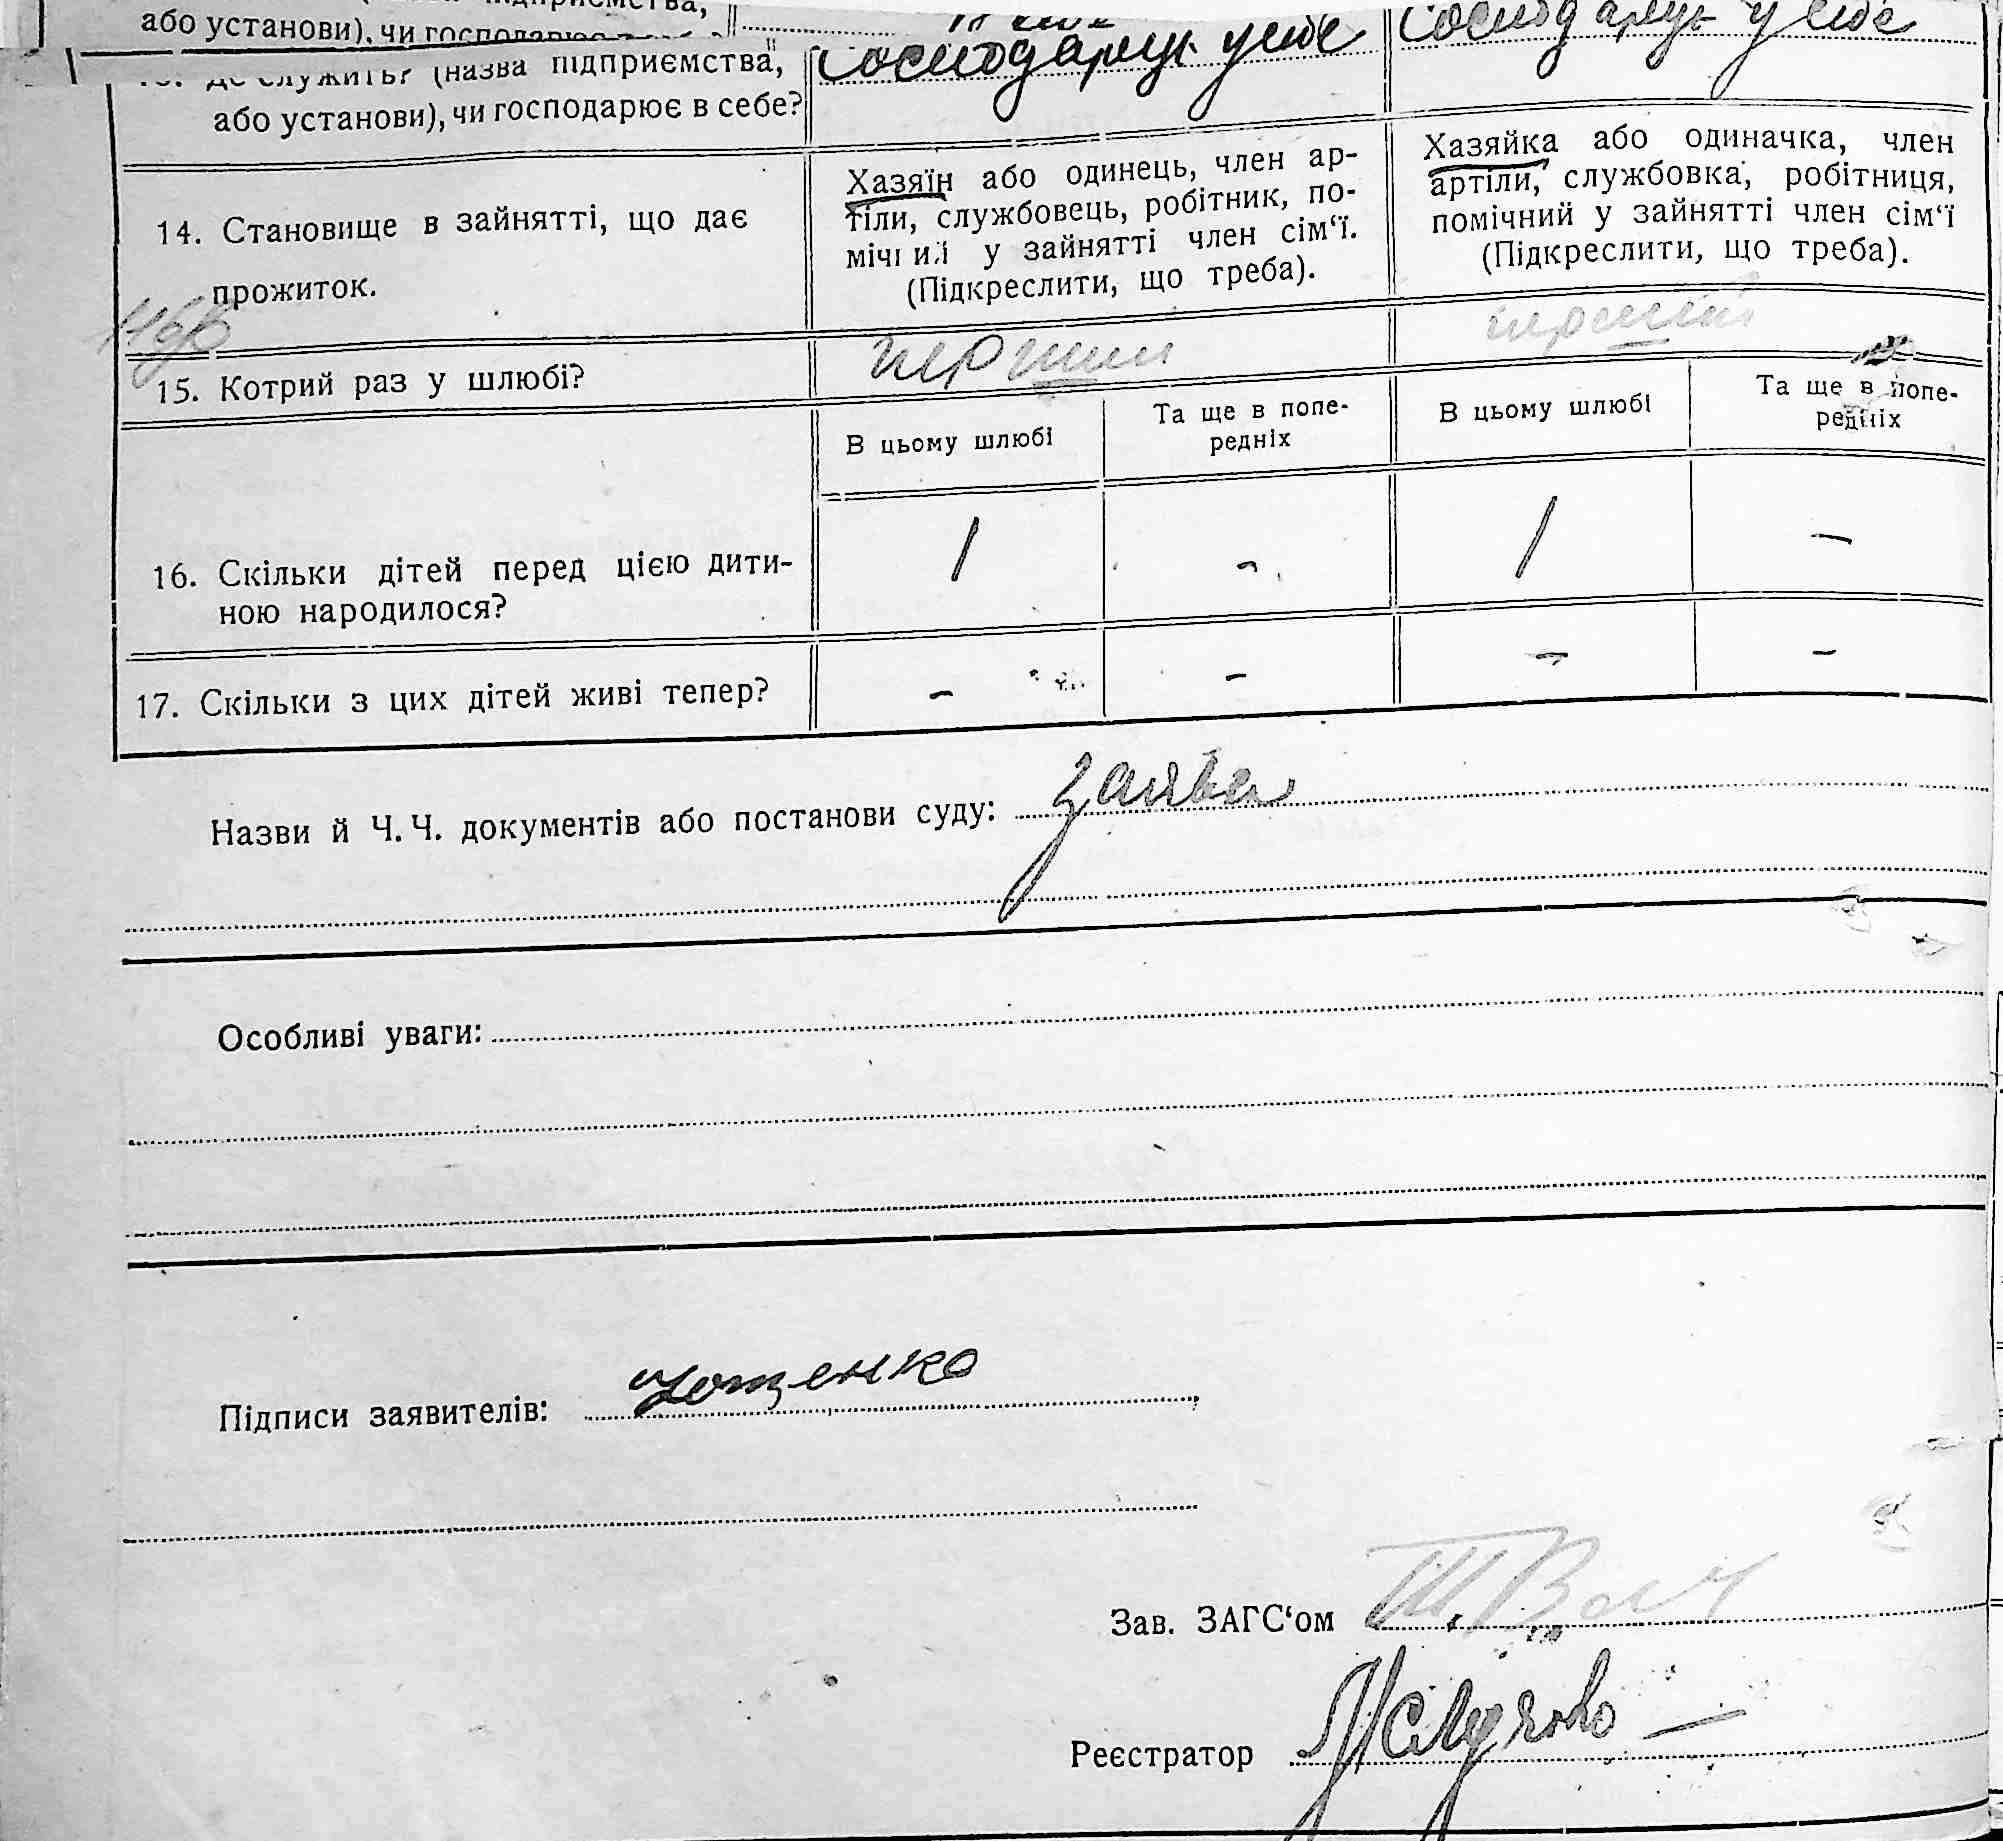 або установи), чи
13. Де служить? (назва підприємства, господарує у себе господарує у себе
або установи), чи господарює в себе?
14. Становище в зайнятті, що дає
прожиток.
Хазяїн або одинець, член ар-
тіли, службовець, робітник, по-
мічний у зайнятті член сім‘ї.
(Підкреслити, що треба).
Хазяйка або одиначка, член
артіли, службовка, робітниця,
помічний у зайнятті член сім‘ї
(Підкреслити, що треба).
15. Котрий раз у шлюбі? перший перший
В цьому шлюбі
Та ще в попе-
редніх
В цьому шлюбі
Та ще в попе-
редніх
16. Скільки дітей перед цією дити-
ною народилося?
1 - 1 -
17. Скільки з цих дітей живі тепер? - - - -
Назви й Ч. Ч. документів або постанови суду: заява
Особливі уваги:
Підписи заявителів:
Зав. ЗАГС‘ом
Реєстратор